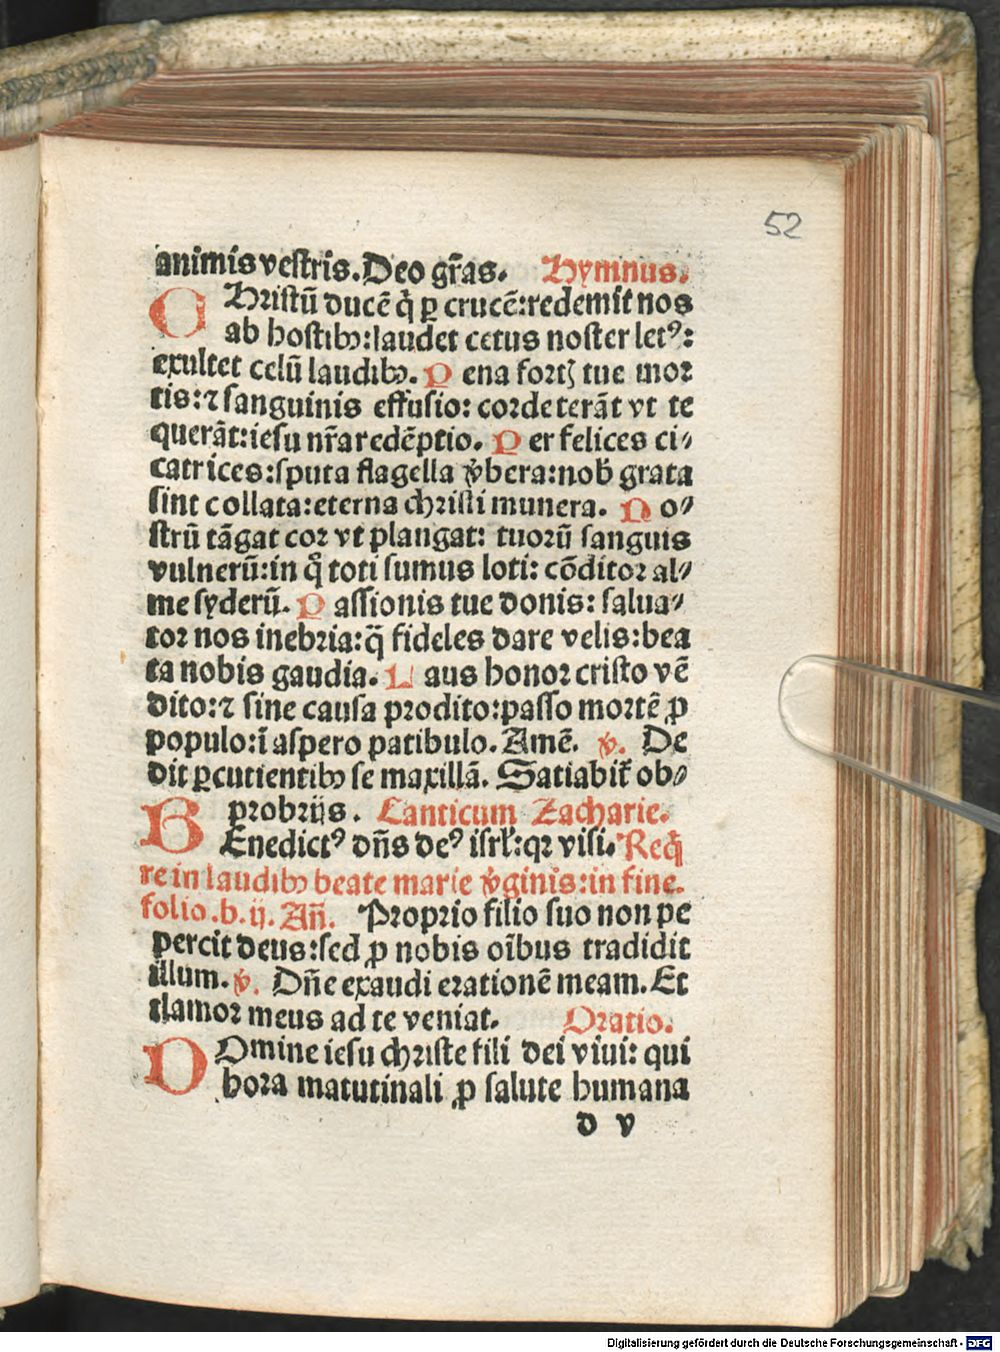 52
animis vestris. Deo gr̄as. Hymnus.
CHristū ducē q̇ ꝑ crucē: redemit nos
ab hostibꝫ: laudet cetus noster letꝰ:
exultet celū laudibꝫ. P ena fortꝭ tue mor
tis: ⁊ sanguinis effusio: corde terāt vt te
querāt: iesu nr̄a redēptio. P er felices ci⸗
catrices: sputa flagella v̾bera: nob̾ grata
sint collata: eterna christi munera. N o⸗
strū tāgat cor vt plangat: tuorū sanguis
vulnerū: in q̊ toti sumus loti: cōditor al⸗
me syderū. P assionis tue donis: salua⸗
tor nos inebria: q̄ fideles dare velis: bea
ta nobis gaudia. L aus honor cristo vē
dito: ⁊ sine causa prodito: passo mortē ꝓ
populo: ī aspero patibulo. Amē. v̾. De
dit ꝑcutientibꝫ se maxillā. Satiabit̾ ob⸗
probrijs. Canticum Zacharie.
BEnedictꝰ dn̄s deꝰ isrl̾: qr visi. Req̇
re in laudibꝫ beate marie v̾ginis: in fine.
folio .b. ij. An̄. Proprio filio suo non pe
percit deus: sed ꝓ nobis oībus tradidit
illum. v̾. Dn̄e exaudi erationē meam. Et
clamor meus ad te veniat. Oratio.
DOmine iesu christe fili dei viui: qui
hora matutinali ꝓ salute humana
d v
Digitalisierung gefördert durch die Deutsche Forschungsgemeinschaft - DFG